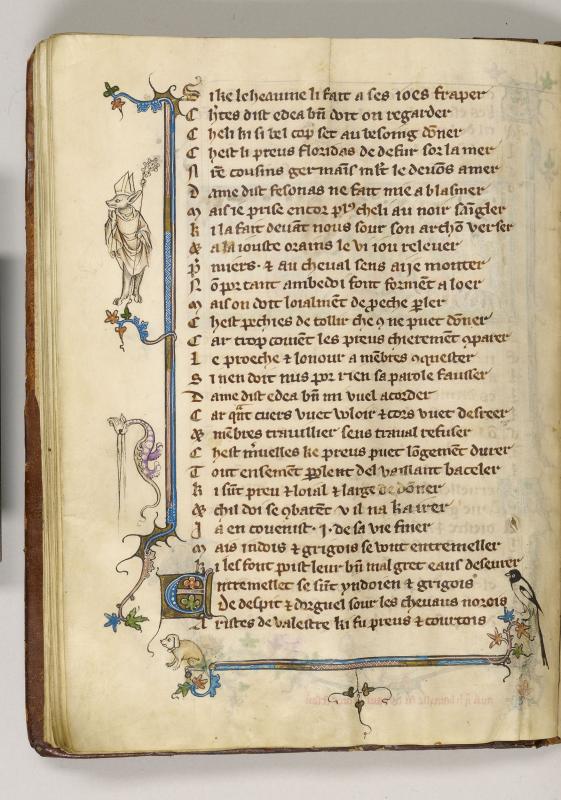 S i ke le heaume li fait a ses ioes fraper
C h'tes dist edea bñ doit on regarder
C heli ki si bel cop set au besoing doner
C hest li preus floridas de desur sor la mer
cousins germains
D ame dist fesonas ne fait mie a blasmer
M ais ie prise encor pl9 cheli au noir saigler
K i la fait deuãt nous sour son archõ verser
& a la iouste orains le vi iou releuer
P' miers · & au cheual sens aïe monter
N õ por tant ambedoi font formẽt a loer
M ais on doit loialmẽt de peche pler
C hest pechies de tollir che 9 ne puet dõner
C ar trop couiẽt les preus chierement 9parer
L e proeche & lonour a mẽbres 9quester
S i nen doit nus por rien sa parole fausser
D ame dist edea bñ mi vuel acorder
C ar qãt cuers vuet voloir & cors vuet desirer
& mẽbres trauillier sens traual refuser
C hest mũelles ke preus puet lõgemẽt durer
T out ensemẽt plent del vaillant baceler
K i sũt preu & loial & large de dõner
& chil doi se 9batẽt v il na ka irer
couenist · I · de sa vie finer
M ais indois & grigois se vont entremeller
K i les font puist leur bñ mal gret eaus deseurer
E ntremellet se sũt yndoien & grigois
De despit & dorguel sour les cheuaus norois
A ristes de valestre ki fu preus & courtois